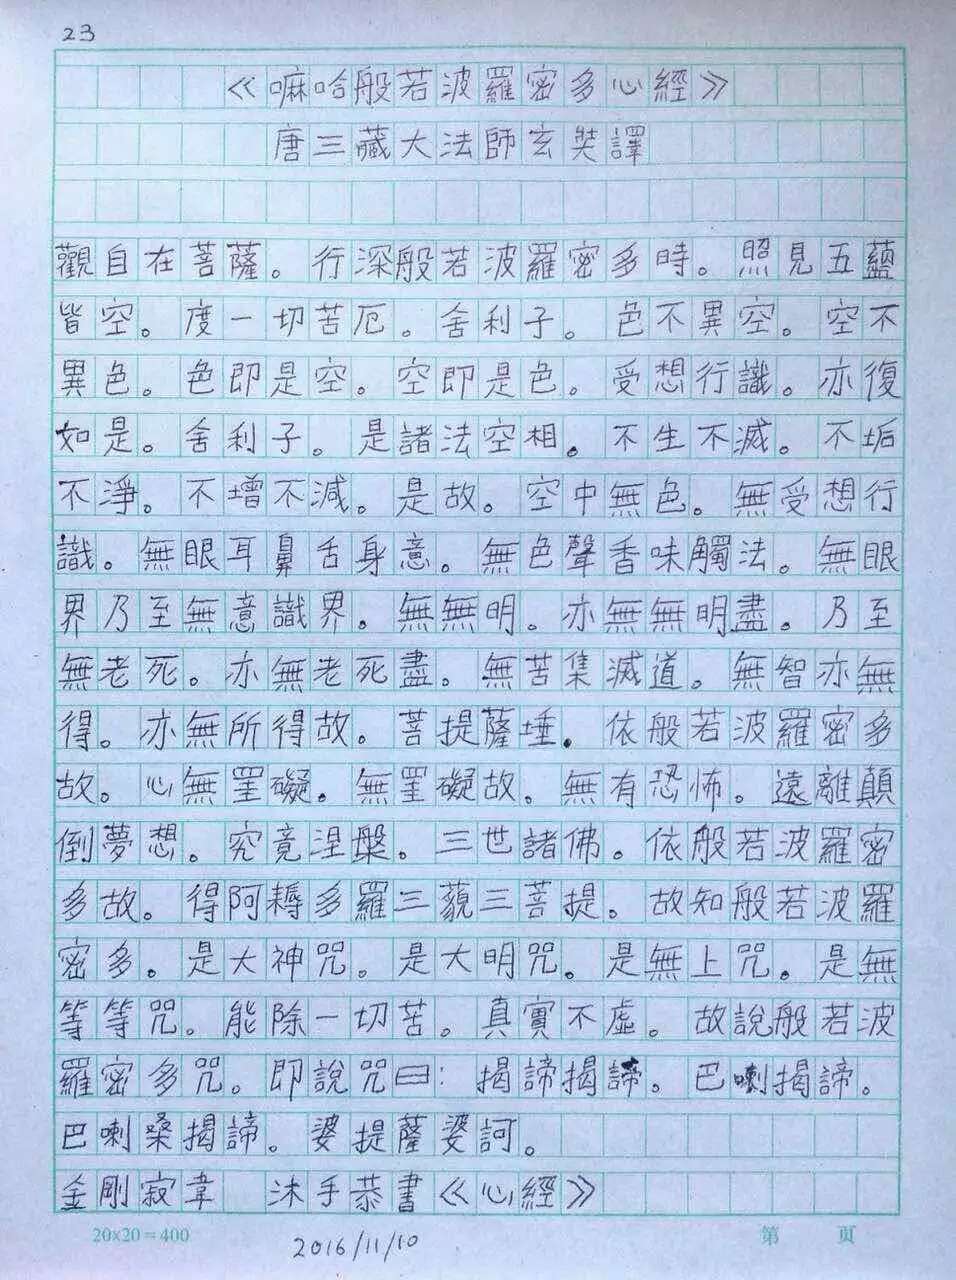 23
《嘛哈般若波羅密多心經》
唐三藏大法師玄奘譯
觀自在菩薩。行深般若波羅密多時。照見五蘊
皆空。度一切苦厄。舍利子。色不異空。空不
異色。色即是空。空即是色。受想行識。亦復
如是。舍利子。是諸法空相。不生不滅。不垢
不淨。不增不減。是故。空中無色。無受想行
識。無眼耳鼻舌身意。無色聲香味觸法。無眼
界乃至無意識界。無無明。亦無無明盡。乃至
無老死。亦無老死盡。無苦集滅道。無智亦無
得。亦無所得故。菩提薩埵。依般若波羅密多
故。心無罣礙。無罣礙故。無有恐怖。遠離顛
倒夢想。究竟涅槃。三世諸佛。依般若波羅密
多故。得阿耨多羅三藐三菩提。故知般若波羅
密多。是大神咒。是大明咒。是無上咒。是無
等等咒。能除一切苦。真實不虛。故說般若波
羅密多咒。即說咒曰：揭諦揭諦。巴喇揭諦。
巴喇嗓揭諦。婆提薩婆訶。
金剛寂韋 沐手恭書《心經》
20×20=400 第 页
2016/11/10